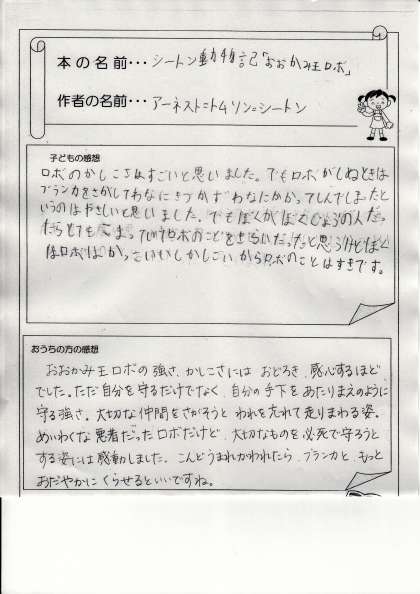 本の名前･･･シートン動物記「おおかみ王ロボ」
作者の名前･･･アーネスト=トムソン=シートン
子どもの感想
ロボのかしこさはすごいと思いました。でもロボがしぬときは
ブランカをさがしてわなにきづかずわなにかかってしんでしまったと
いうのはやさしいと思いました。でもぼくがぼくじょうの人だっ
たらとてもこまっていてロボのことをきらいだったと思うけどぼく
はロボはかっこいいしかしこいからロボのことはすきです。
おうちの方の感想
おおかみ王ロボの強さ、かしこさには おどろき、感心するほど
でした。ただ自分を守るだけでなく、自分の手下をあたりまえのように
守る強さ。大切な仲間をさがそうと われを忘れて走りまわる姿。
めいわくな悪者だったロボだけど、大切なものを必死で守ろうと
する姿には感動しました。こんどうまれかわれたら、ブランカと、もっと
おだやかに くらせるといいですね。